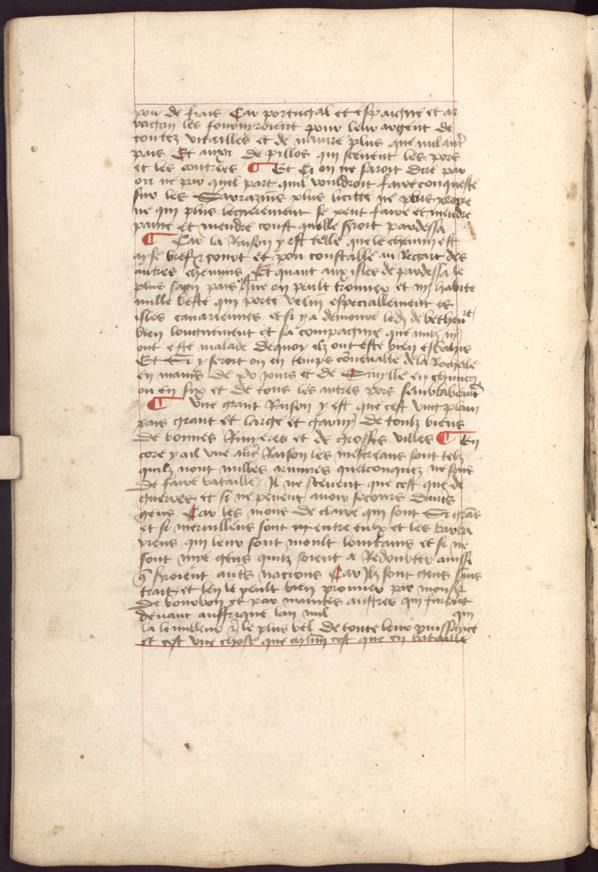 pou de frais Car portugal et espaigne et ar
ragon les fourniroient pour leur argent de
toutez vitailles et de navire plus que nul autre
pais Et aussi de pillos qui scevent les pors
et les contrees ¶ Et si on ne saroit dire par
ou ne par quel part quil vouldroit faire conqueste
sur les Sarrazins plus licitte ne plus propre
ne qui plus legierement se peut faire et a mendre
paine et mendre coust quelle seroit pardessa
¶ Car la Raison y est telle que le chemin est
aise brief court et pou constable au Regart des
autres chemins Et quant aux isles de pardessa le
plus sain pais que on peult trouver et ny habite
nulle beste qui porte velin especiallement es
isles canariennes et si y a demoure led de bethen
bien longuement et sa compaignie que nulz ny
ont este malade dequoy ilz ont este bien esbahis
Et Si y seroit on en temps convenable de la Rochelle
en mains de xv jours et de Seville en chincq
ou en six et de tous les autres pors semblablement
¶ Une grant Raison y est que cest ung plain
pais grant et large et garny de toulz biens
De bonnes Rivieres et de grosses villes ¶ En
core y a il une autre Raison les mescreans sont telz
quilz nont nulles armures quelconquez ne sens
De faire bataille Il ne scevent que cest que de
guerres et si ne pevent avoir secours dautres
gens Car les mons de claire qui sont Si grans
et si merveilleux sont entre eulx et les barba
riens qui leur sont moult loingtains et si ne
sont mye gens quilz soient a Redoubter ainssi
que seroient autres nacions Car Ilz sont gens sans
trait et len le peult bien prouver par monsr
De bourbon et par maintes aultres qui furent
devant auffrique lan mil
la le milleur et le plus bel de toute leur puissance
et est une chose que chascun cest que en bataille